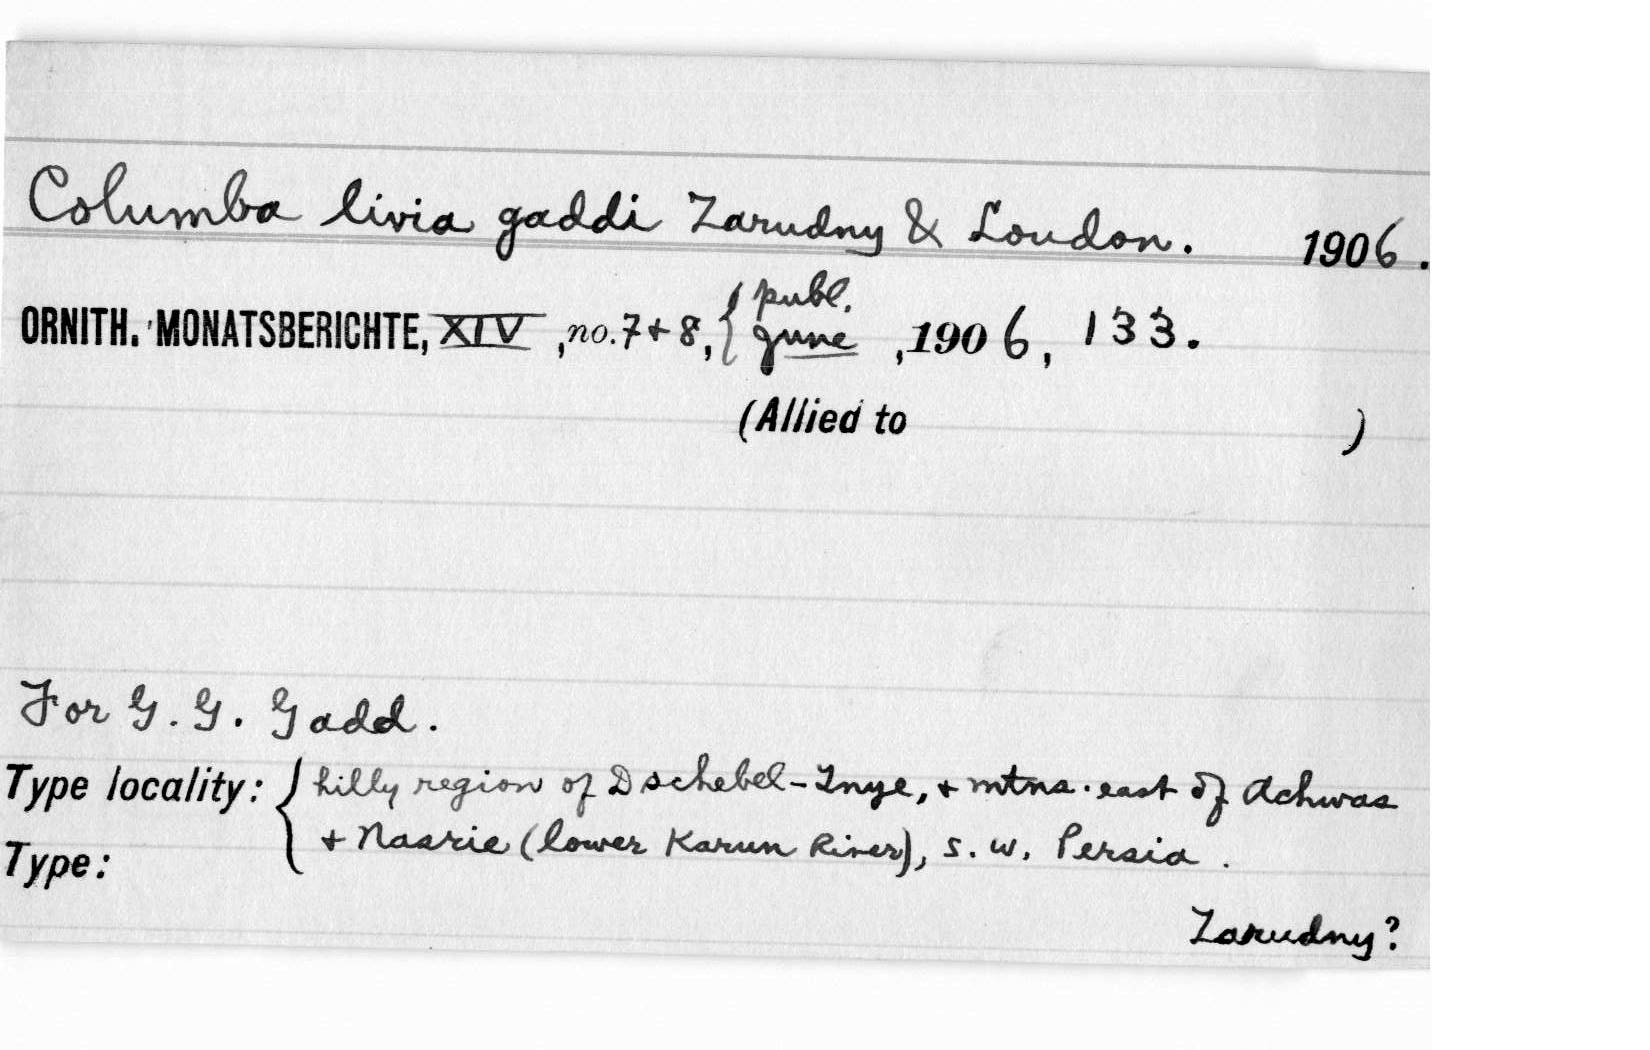 Columba livia gaddi Zarudny & Loudon. 1906.
ORNITH. MONATSBERICHTE, XIV, no. 7 + 8, { publ. June, 1906, 133.
(Allied to )
For G. G. Gadd.
Type locality: { hilly region of Dschebel-Inye, + mtns. east of Achwas
+ Nasrie (lower Karun River), s. w. Persia.
Type:
Zarudny?